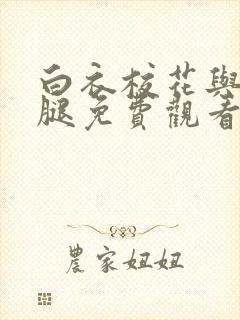 白衣校花與
腿免費觀看
農家妞妞